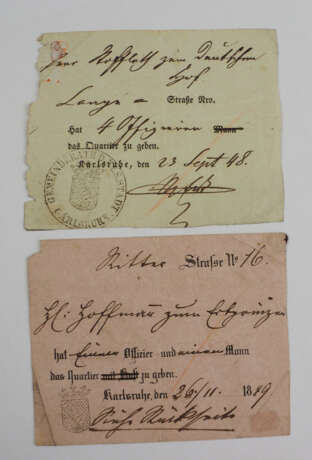 Herr Stoffleth zum Deutschen
Hof
Lange - Straße Nro.
Hat 4 Offizieren Mann
das Quartier zu geben.
Karlsruhe, den 23 Sept 48.
GEMEINDERATH DER RESIDENZSTADT CARLSRUHE
Ritter Strasse No 16.
H: Hoffmann zum Erbprinzen
hat Einen Officier und einen Mann
das Quartier mit Kost zu geben.
Karlsruhe, den 26/11. 1849
Siehe Rückseite